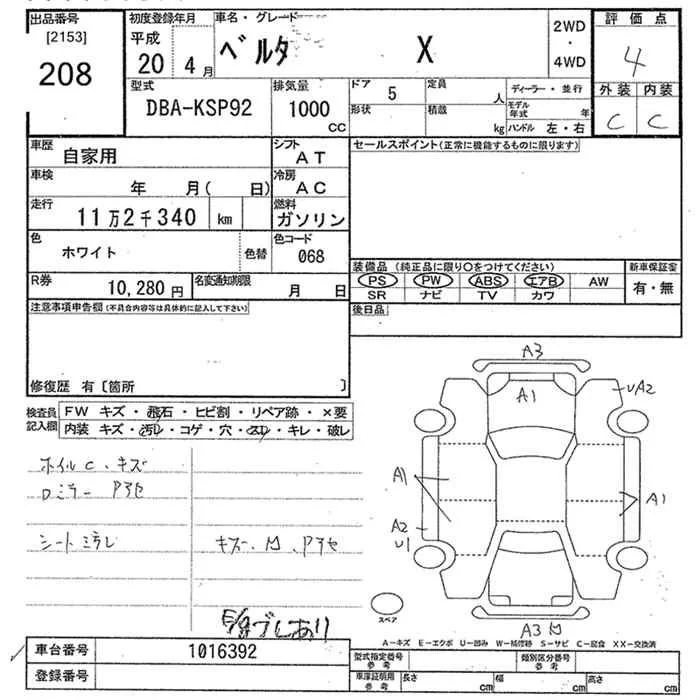 出品番号 初度登録年月 車名・グレード 評価点
[2153] 平成 ベルタ X 2WD・4WD 4
208 20 4月
型式 排気量 ドア 5 定員 人 ディーラー・並行 外装 内装
DBA-KSP92 1000 CC 形状 積載 kg モデル年式 年 ハンドル 左・右 C C
車歴 自家用 シフト AT セールスポイント(正常に機能するものに限ります)
車検 年 月( 日) 冷房 AC
走行 11万2千340 km 燃料 ガソリン
色 ホワイト 色替 色コード 068
装備品 (純正品に限り〇をつけてください) 新車保証書
R券 10,280円 名変通知期限 月 日 PS PW ABS エアB AW 有・無
SR ナビ TV カワ
注意事項申告欄(不具合内容等は具体的に記入して下さい) 後日品
修復歴 有〔箇所 〕
検査員記入欄 FW キズ・飛石・ヒビ割・リペア跡・×要
内装 キズ・汚レ・コゲ・穴・スレ・キレ・破レ
A3
A1
UA2
ホイルC、キズ
A1
A1
A2
U1
A3
スペア
A-キズ E-エクボ U-凹み W-補修跡 S-サビ C-腐食 XX-交換済
車台番号 1016392 型式指定番号 参考 類別区分番号 参考
登録番号 車庫証明用 参考 長さ cm 幅 cm 高さ cm